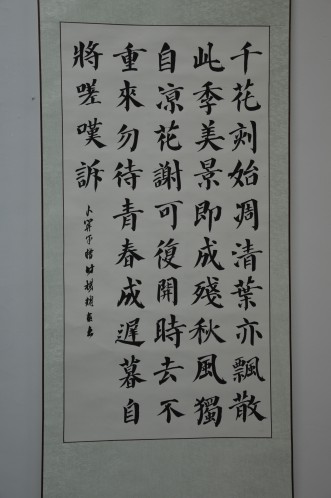 千花刻始凋清葉亦飄散
此季美景即成殘秋風獨
自涼花謝可復開時去不
重來勿待青春成遲暮自
將嗟嘆訴